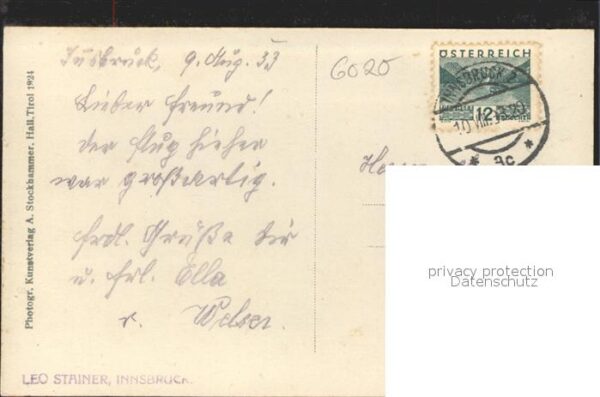 Innsbruck, 9. Aug. 33
Lieber Freund!
Der Flug hieher
war großartig.
Frdl. Grüße Dir
u. Frl. Ella
v. Welser.
6020
ÖSTERREICH
12
INNSBRUCK 2
10.VIII.33
* 9c *
Photogr. Kunstverlag A. Stockhammer, Hall, Tirol 1924
LEO STAINER, INNSBRUCK.
privacy protection
Datenschutz